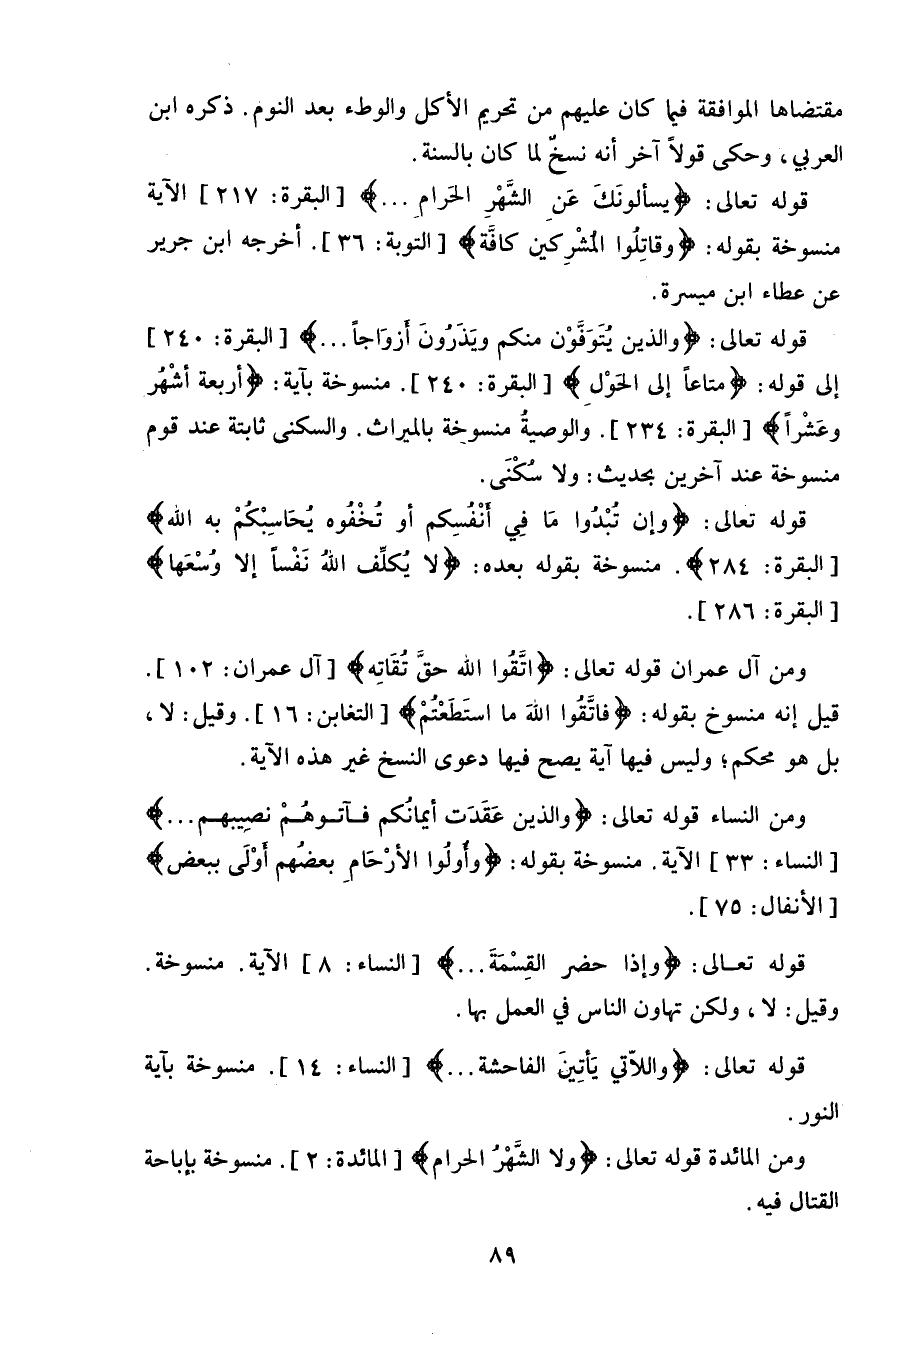 مقتضاها الموافقة فيما كان عليهم من تحريم الأكل والوطء بعد النوم. ذكره ابن
العربي، وحكى قولاً آخر أنه نسخٌ لما كان بالسنة.
قوله تعالى: ﴿يسألونَكَ عَنِ الشَّهْرِ الحَرامِ ...﴾ [البقرة: ٢١٧] الآية
منسوخة بقوله: ﴿وقاتِلُوا المُشْرِكين كافَّة﴾ [التوبة: ٣٦]. أخرجه ابن جرير
عن عطاء ابن ميسرة.
قوله تعالى: ﴿والذين يُتَوَفَّوْن منكم ويَذَرُونَ أزوَاجاً...﴾ [البقرة: ٢٤٠]
إلى قوله: ﴿متاعاً إلى الحَوْلِ﴾ [البقرة: ٢٤٠]. منسوخة بآية: ﴿أربعة أشْهُر
وعَشْراً﴾ [البقرة: ٢٣٤]. والوصيةُ منسوخة بالميراث. والسكنى ثابتة عند قوم
منسوخة عند آخرين بحديث: ولا سُكْنَى.
قوله تعالى: ﴿وإن تُبْدُوا مَا فِي أَنْفُسِكم أو تُخْفُوه يُحَاسِبْكُمْ به الله﴾
[البقرة: ٢٨٤﴾. منسوخة بقوله بعده: ﴿لا يُكلِّف اللهُ نَفْساً إلا وُسْعَها﴾
[البقرة: ٢٨٦].
ومن آل عمران قوله تعالى: ﴿اتَّقُوا الله حقَّ تُقَاتِه﴾ [آل عمران: ١٠٢].
قيل إنه منسوخ بقوله: ﴿فاتَّقُوا اللهَ ما استَطَعْتُمْ﴾ [التغابن: ١٦]. وقيل: لا،
بل هو محكم؛ وليس فيها آية يصح فيها دعوى النسخ غير هذه الآية.
ومن النساء قوله تعالى: ﴿والذين عَقَدَت أيمانُكم فـآتـوهُـمْ نصِيبهـم...﴾
[النساء: ٣٣] الآية. منسوخة بقوله: ﴿وأُولُوا الأرْحَامِ بعضُهم أَوْلَى ببعض﴾
[الأنفال: ٧٥].
قوله تعـالى: ﴿وإذا حضر القِسْمَةَ...﴾ [النساء: ٨] الآية. منسوخة.
وقيل: لا، ولكن تهاون الناس في العمل بها.
قوله تعالى: ﴿واللاّتي يَأتِينَ الفاحشة...﴾ [النساء: ١٤]. منسوخة بآية
النور.
ومن المائدة قوله تعالى: ﴿ولا الشَّهْرُ الحرام﴾ [المائدة: ٢]. منسوخة بإباحة
القتال فيه.
٨٩